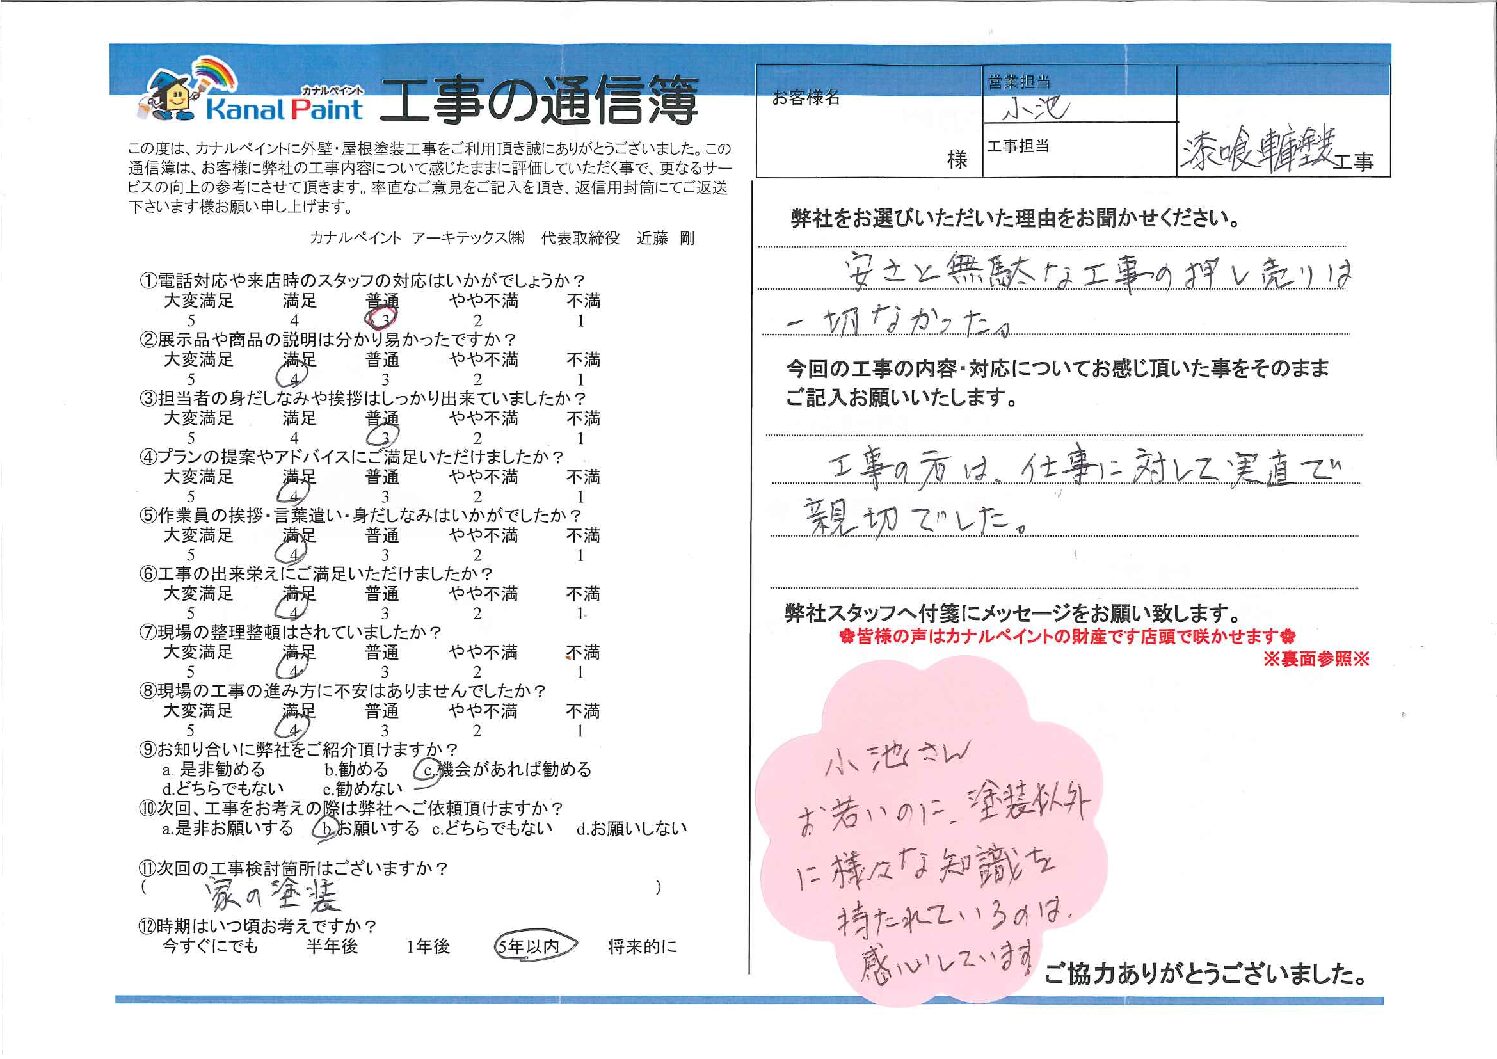 カナルペイント
Kanal Paint 工事の通信簿
この度は、カナルペイントに外壁・屋根塗装工事をご利用頂き誠にありがとうございました。この
通信簿は、お客様に弊社の工事内容について感じたままに評価していただく事で、更なるサー
ビスの向上の参考にさせて頂きます。率直なご意見をご記入を頂き、返信用封筒にてご返送
下さいます様お願い申し上げます。
カナルペイント アーキテックス㈱ 代表取締役 近藤 剛
①電話対応や来店時のスタッフの対応はいかがでしょうか？
大変満足 満足 普通 やや不満 不満
5 4 3 2 1
②展示品や商品の説明は分かり易かったですか？
大変満足 満足 普通 やや不満 不満
5 4 3 2 1
③担当者の身だしなみや挨拶はしっかり出来ていましたか？
大変満足 満足 普通 やや不満 不満
5 4 3 2 1
④プランの提案やアドバイスにご満足いただけましたか？
大変満足 満足 普通 やや不満 不満
5 4 3 2 1
⑤作業員の挨拶・言葉遣い・身だしなみはいかがでしたか？
大変満足 満足 普通 やや不満 不満
5 4 3 2 1
⑥工事の出来栄えにご満足いただけましたか？
大変満足 満足 普通 やや不満 不満
5 4 3 2 1
⑦現場の整理整頓はされていましたか？
大変満足 満足 普通 やや不満 不満
5 4 3 2 1
⑧現場の工事の進み方に不安はありませんでしたか？
大変満足 満足 普通 やや不満 不満
5 4 3 2 1
⑨お知り合いに弊社をご紹介頂けますか？
a. 是非勧める b.勧める c.機会があれば勧める
d.どちらでもない e.勧めない
⑩次回、工事をお考えの際は弊社へご依頼頂けますか？
a.是非お願いする b.お願いする c.どちらでもない d.お願いしない
⑪次回の工事検討箇所はございますか？
( 家の塗装 )
⑫時期はいつ頃お考えですか？
今すぐにでも 半年後 1年後 5年以内 将来的に
お客様名
様
営業担当
小池
工事担当
漆喰 塗装工事
弊社をお選びいただいた理由をお聞かせください。
安さと無駄な工事の押し売りは
一切なかった。
今回の工事の内容・対応についてお感じ頂いた事をそのまま
ご記入お願いいたします。
工事の方は、仕事に対して実直で
親切でした。
弊社スタッフへ付箋にメッセージをお願い致します。
✿皆様の声はカナルペイントの財産です店頭で咲かせます✿
※裏面参照※
小池さん
お若いのに、塗装以外
に様々な知識を
持たれているのは、
感心しています
ご協力ありがとうございました。